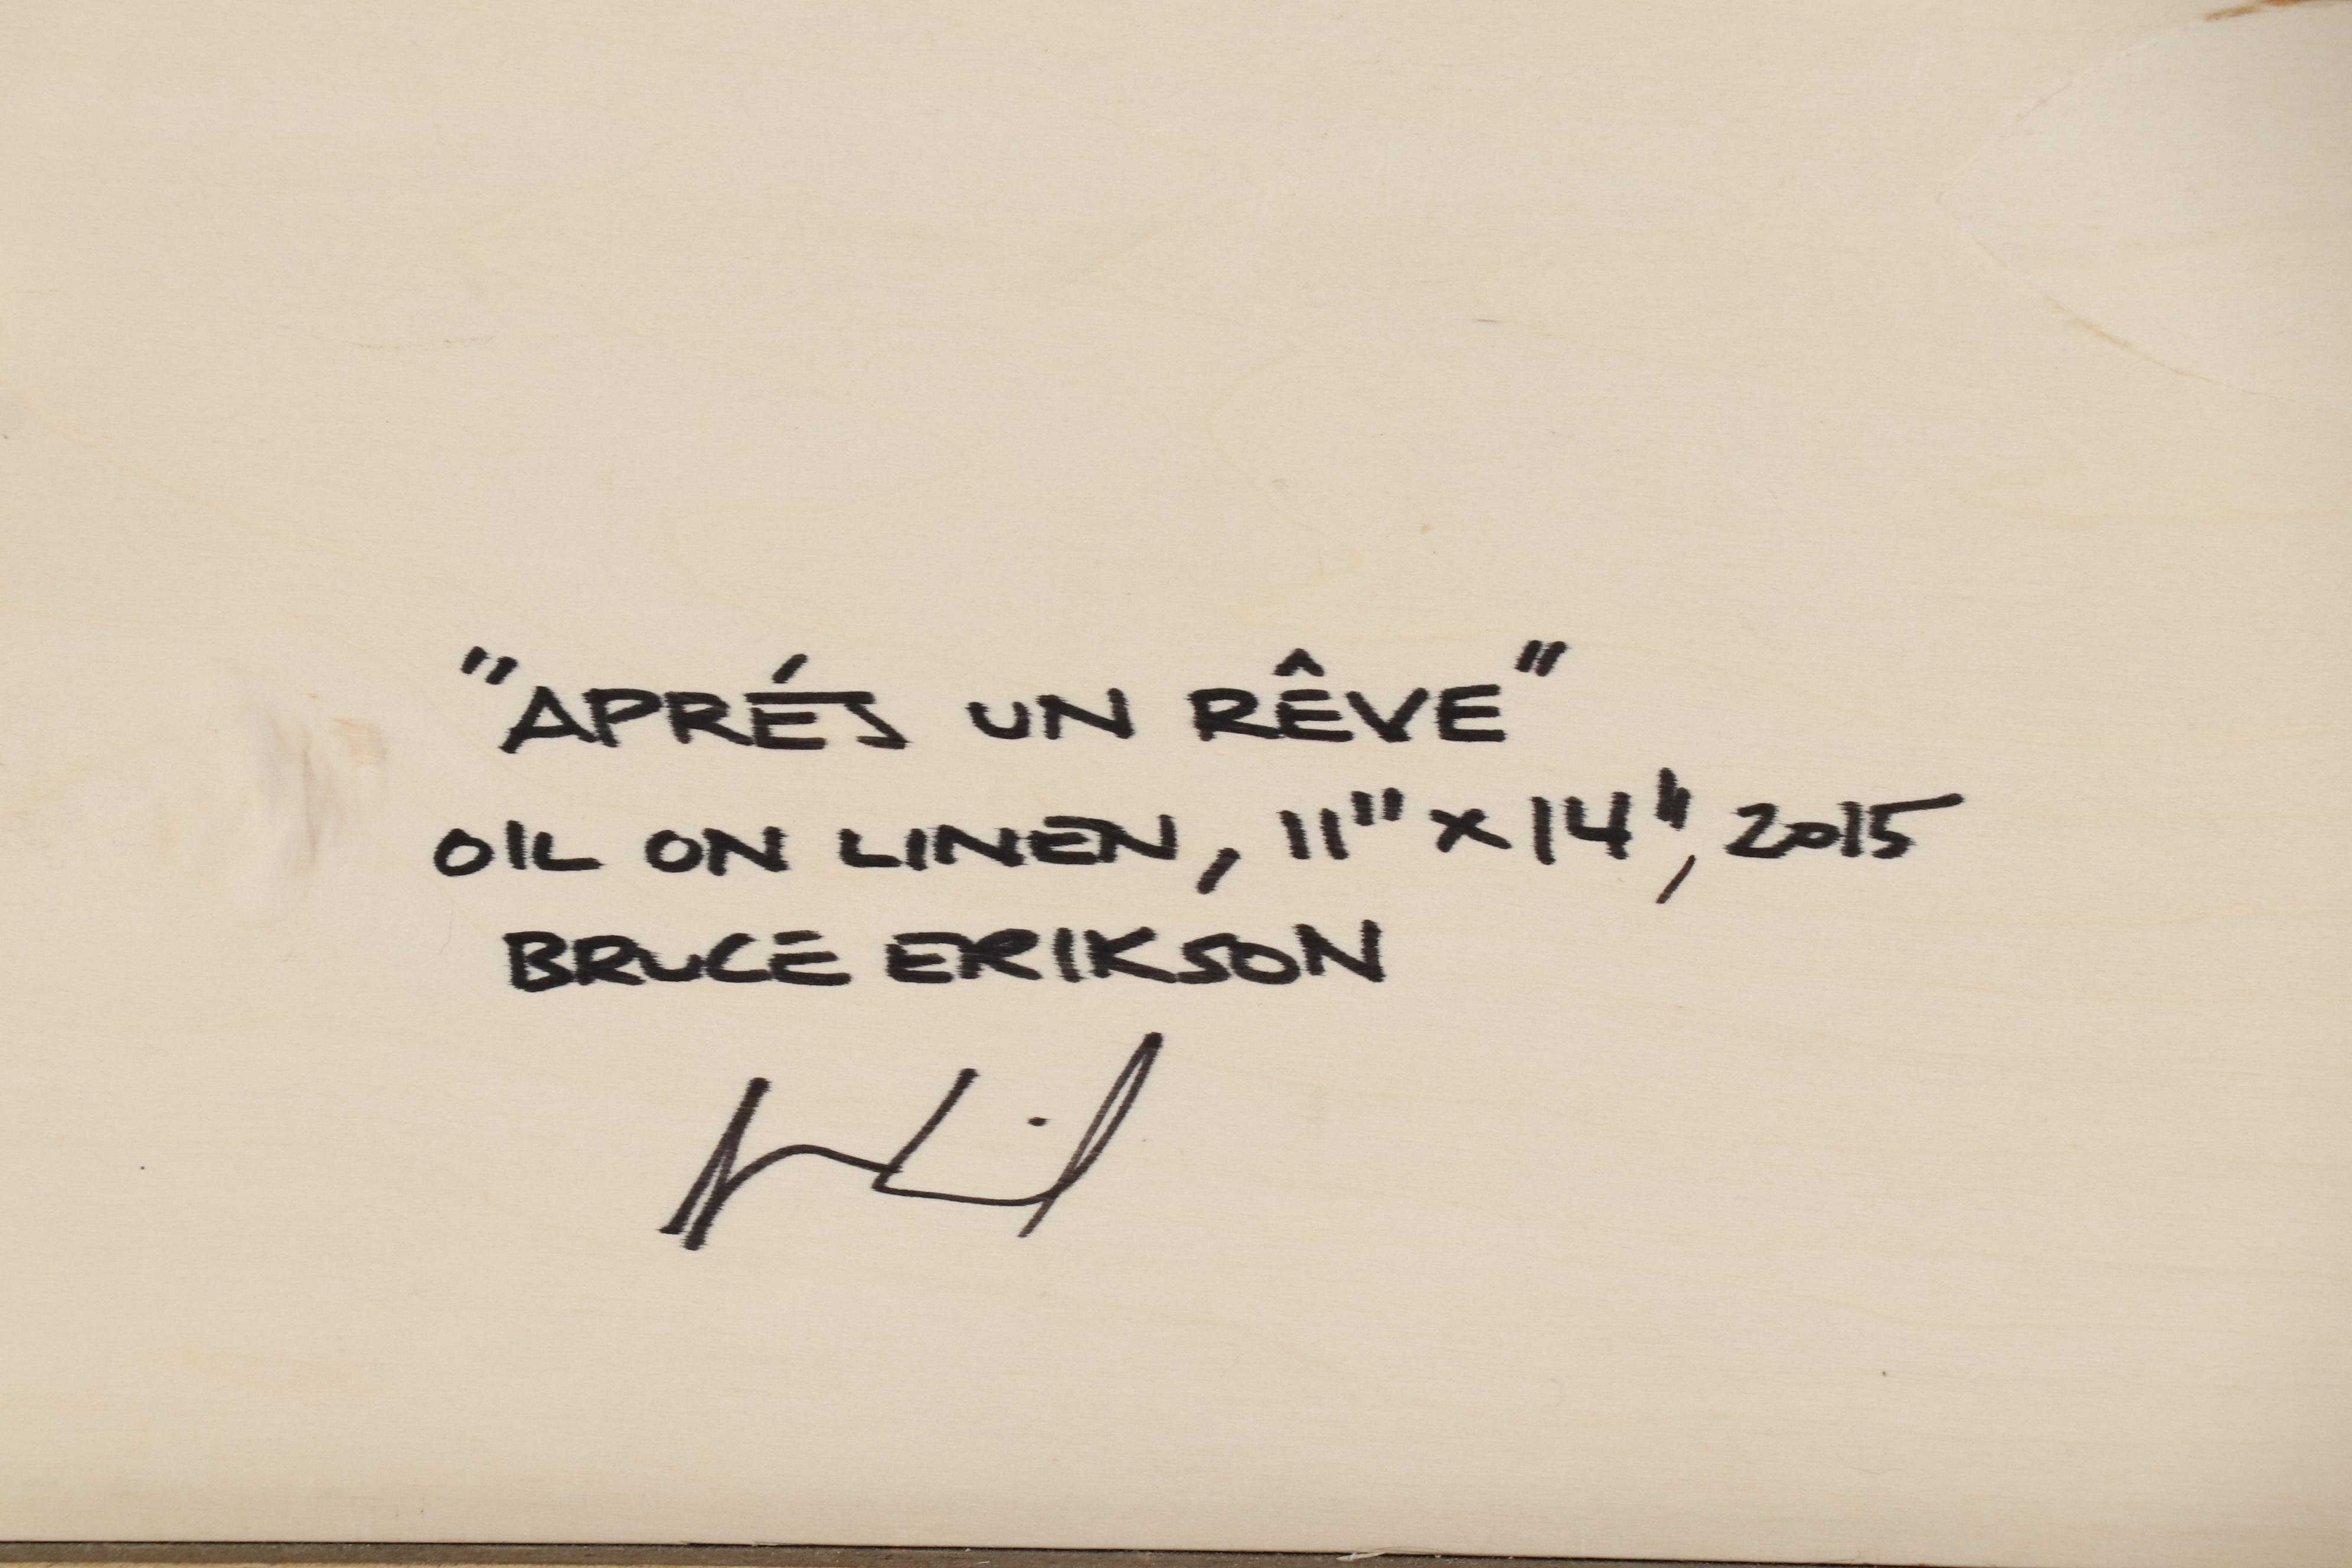 "APRÉS UN RÊVE"
OIL ON LINEN, 11" x 14", 2015
BRUCE ERIKSON